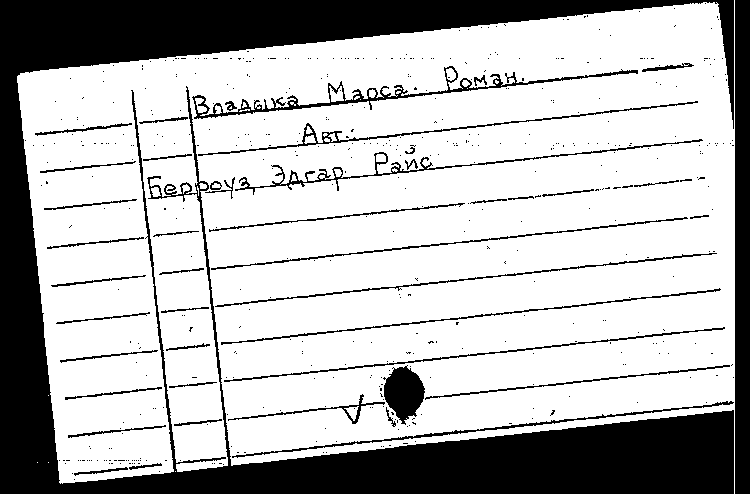 Владыка Марса. Роман.
Авт.:
Берроуз, Эдгар Райс